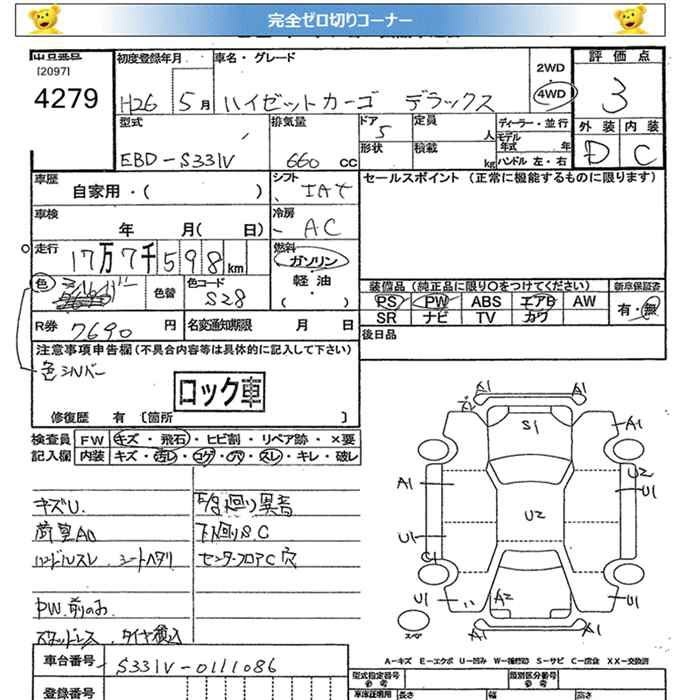 完全ゼロ切りコーナー
出品番号
[2097]
4279
初度登録年月
H26 5月
車名・グレード
ハイゼットカーゴ デラックス
2WD
4WD
評価点
3
外装 内装
D C
型式
EBD-S331V
排気量
660 cc
ドア
5
形状
定員
人
積載
kg
ディーラー・並行
モデル
年式 年
ハンドル 左・右
車歴
自家用・( )
シフト
IAT
車検
年 月( 日)
冷房
AC
走行
17万7千598km
燃料
ガソリン
軽油
( )
色
色替
色コード
S28
R券 7690 円
名変通知期限 月 日
セールスポイント (正常に機能するものに限ります)
装備品 (純正品に限り○をつけてください)
PS PW ABS エアB AW
SR ナビ TV カワ
新車保証書
有・無
後日品
注意事項申告欄(不具合内容等は具体的に記入して下さい)
色シルバー
ロック車
修復歴 有 [箇所 ]
検査員
記入欄
FW キズ・飛石・ヒビ割・リペア跡・×要
内装 キズ・汚レ・コゲ・穴・スレ・キレ・破レ
キズU.
荷室AU
ハンドルスレ.シートヘタリ
PW.前のみ
スタッドレス.タイヤ積込
下廻りSC
センターフロアC穴
A1 A1
S1
A1
A1
U2
U1
U2
U1
C1
U1
A2
U1
A1 A1
スペア
A-キズ E-エクボ U-凹み W-補修跡 S-サビ C-腐食 XX-交換済
車台番号 S331V-0111086
登録番号
型式指定番号
類別区分番号
参考
車庫証明用
参考
長さ 幅 高さ